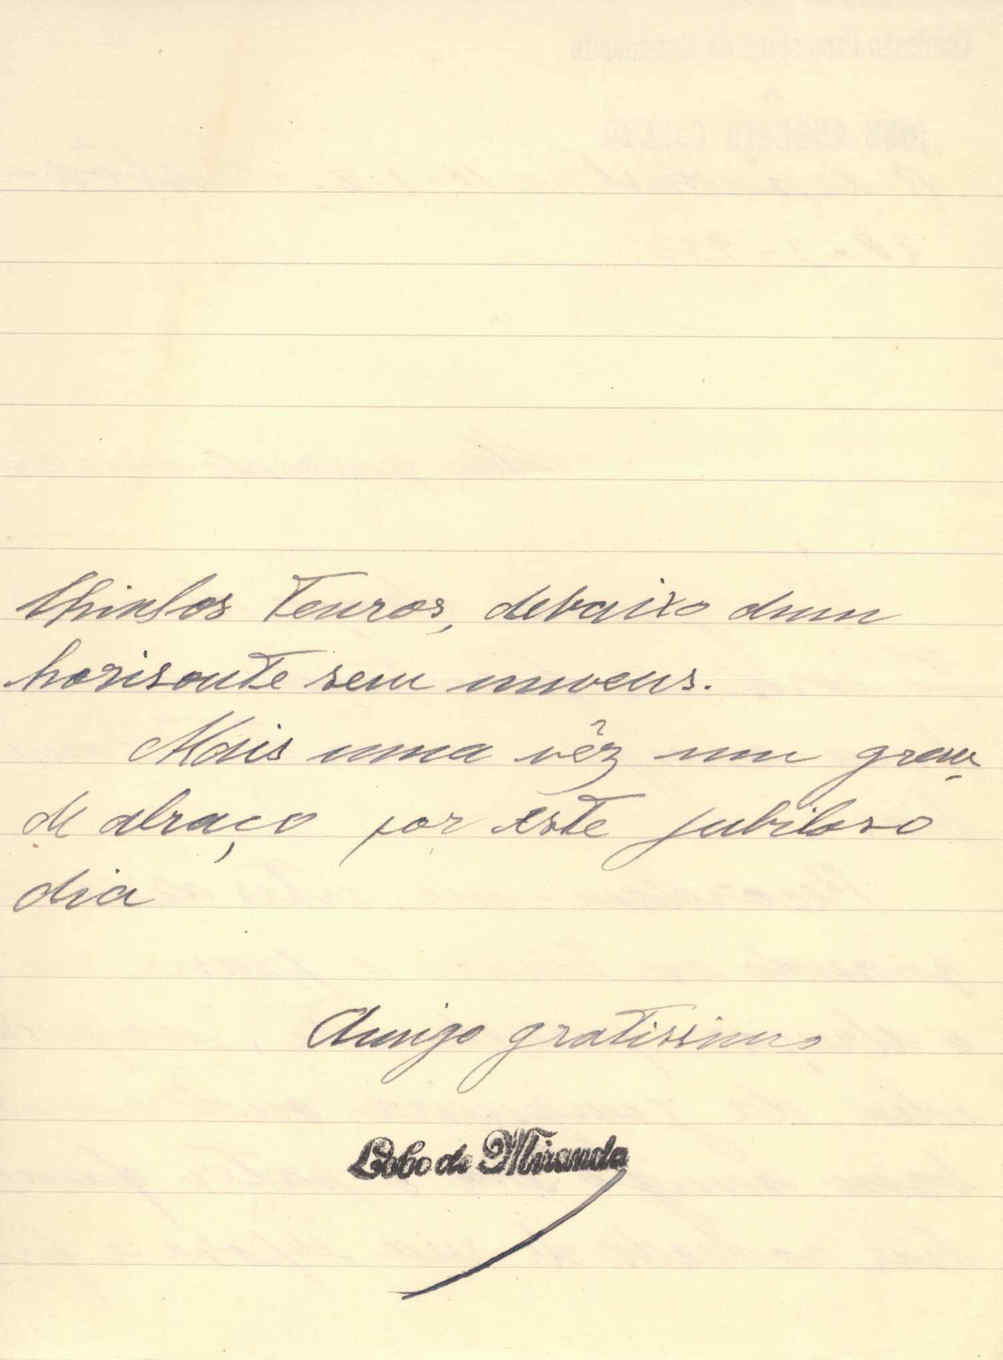 tenros, debaixo dum
horisonte sem nuvens.
Mais uma vêz um gran-
de abraço por este jubiloso
dia
Amigo gratissimo
Lobo de Miranda